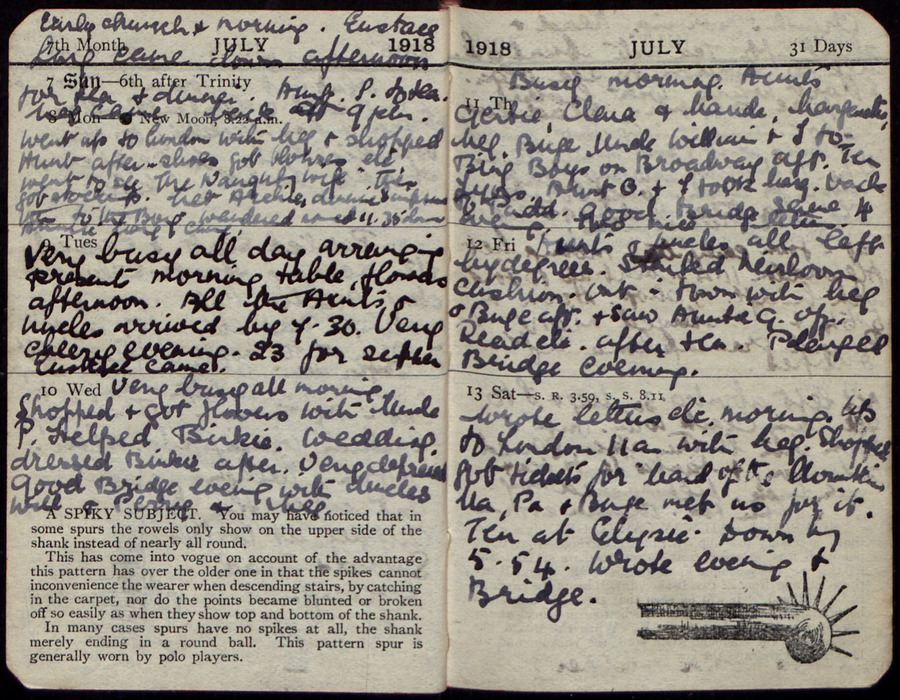 Early church & morning. Eustace
7th Month JULY 1918
Long came down afternoon
7 Sun—6th after Trinity
for tea & dinner. Aunt S. to tea.
8 Mon— New Moon, 8.22 a.m.
went up to London with Meg & shopped
Aunt after shoes got blouses etc
went to see The Naughty Wife. Tea
got stockings. Met Archie,
wandered round 11.35 down
9 Tues
Very busy all day arranging
present morning table, flowers
afternoon. All the Aunts &
Uncles arrived by 7.30. Very
cheery evening. 23 for supper
Eustace came.
10 Wed Very busy all morning
Shopped & got flowers with Uncle
P. Helped Birkie. Wedding
dressed Birkie after. Very depressed
Good Bridge evening with Uncles
A SPIKY SUBJECT. You may have noticed that in
some spurs the rowels only show on the upper side of the
shank instead of nearly all round.
This has come into vogue on account of the advantage
this pattern has over the older one in that the spikes cannot
inconvenience the wearer when descending stairs, by catching
in the carpet, nor do the points became blunted or broken
off so easily as when they show top and bottom of the shank.
In many cases spurs have no spikes at all, the shank
merely ending in a round ball. This pattern spur is
generally worn by polo players.
1918 JULY 31 Days
Busy morning. Aunts
11 Th
Gertie, Clena & Maude, Margaret,
Meg, Buge, Uncle William & I to
Big Boys on Broadway aft. Tea
Aunt B. & I took Marg. back
Good Bridge
12 Fri Aunts & Uncles all left
by degrees. Started heirloom
cushion. Out in town with Meg
& Buge aft. & saw Aunt G. off.
Read etc. after tea. Played
Bridge evening.
13 Sat—S. R. 3.59, S. S. 8.11
Wrote letters etc. morning. Up
to London 11am with Meg. Shopped
Got tickets for Lord of the Mountain
Ma, Pa & Buge met us for it.
Tea at Elysée. Down by
5.54. Wrote evening &
Bridge.